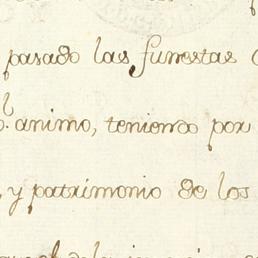 pasado las funestas
animo, teniendo por
y patrimonio de los